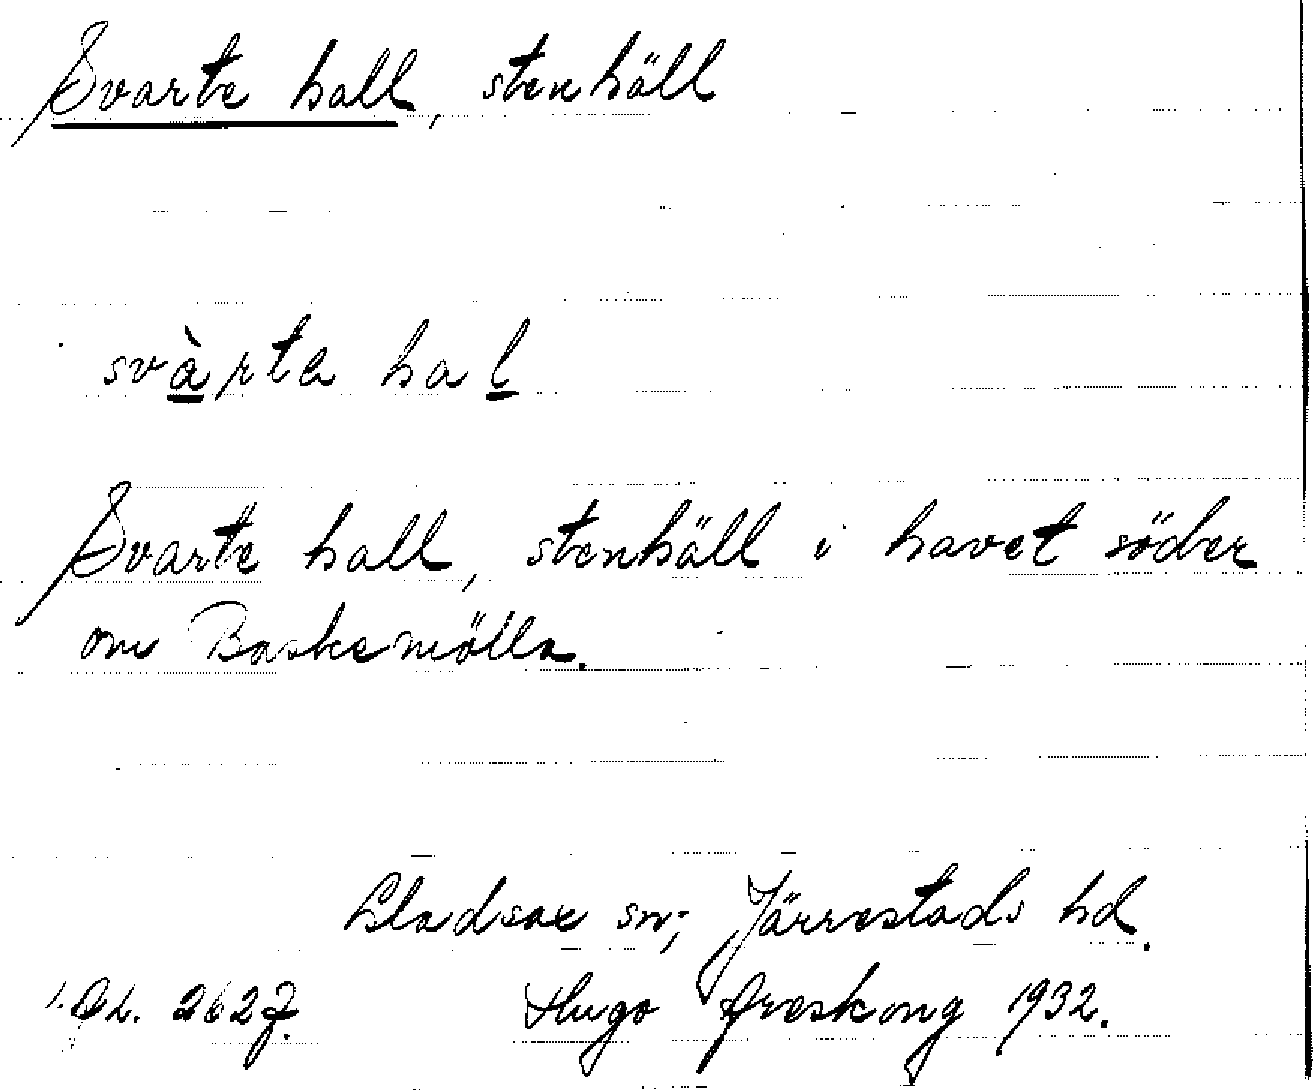 Svarte hall, stenhäll
svàrta hal
Svarte hall, stenhäll i havet söder
om Baskemölla.
Gladsax sn; Järrestads hd.
2627. Hugo Areskoug 1932.